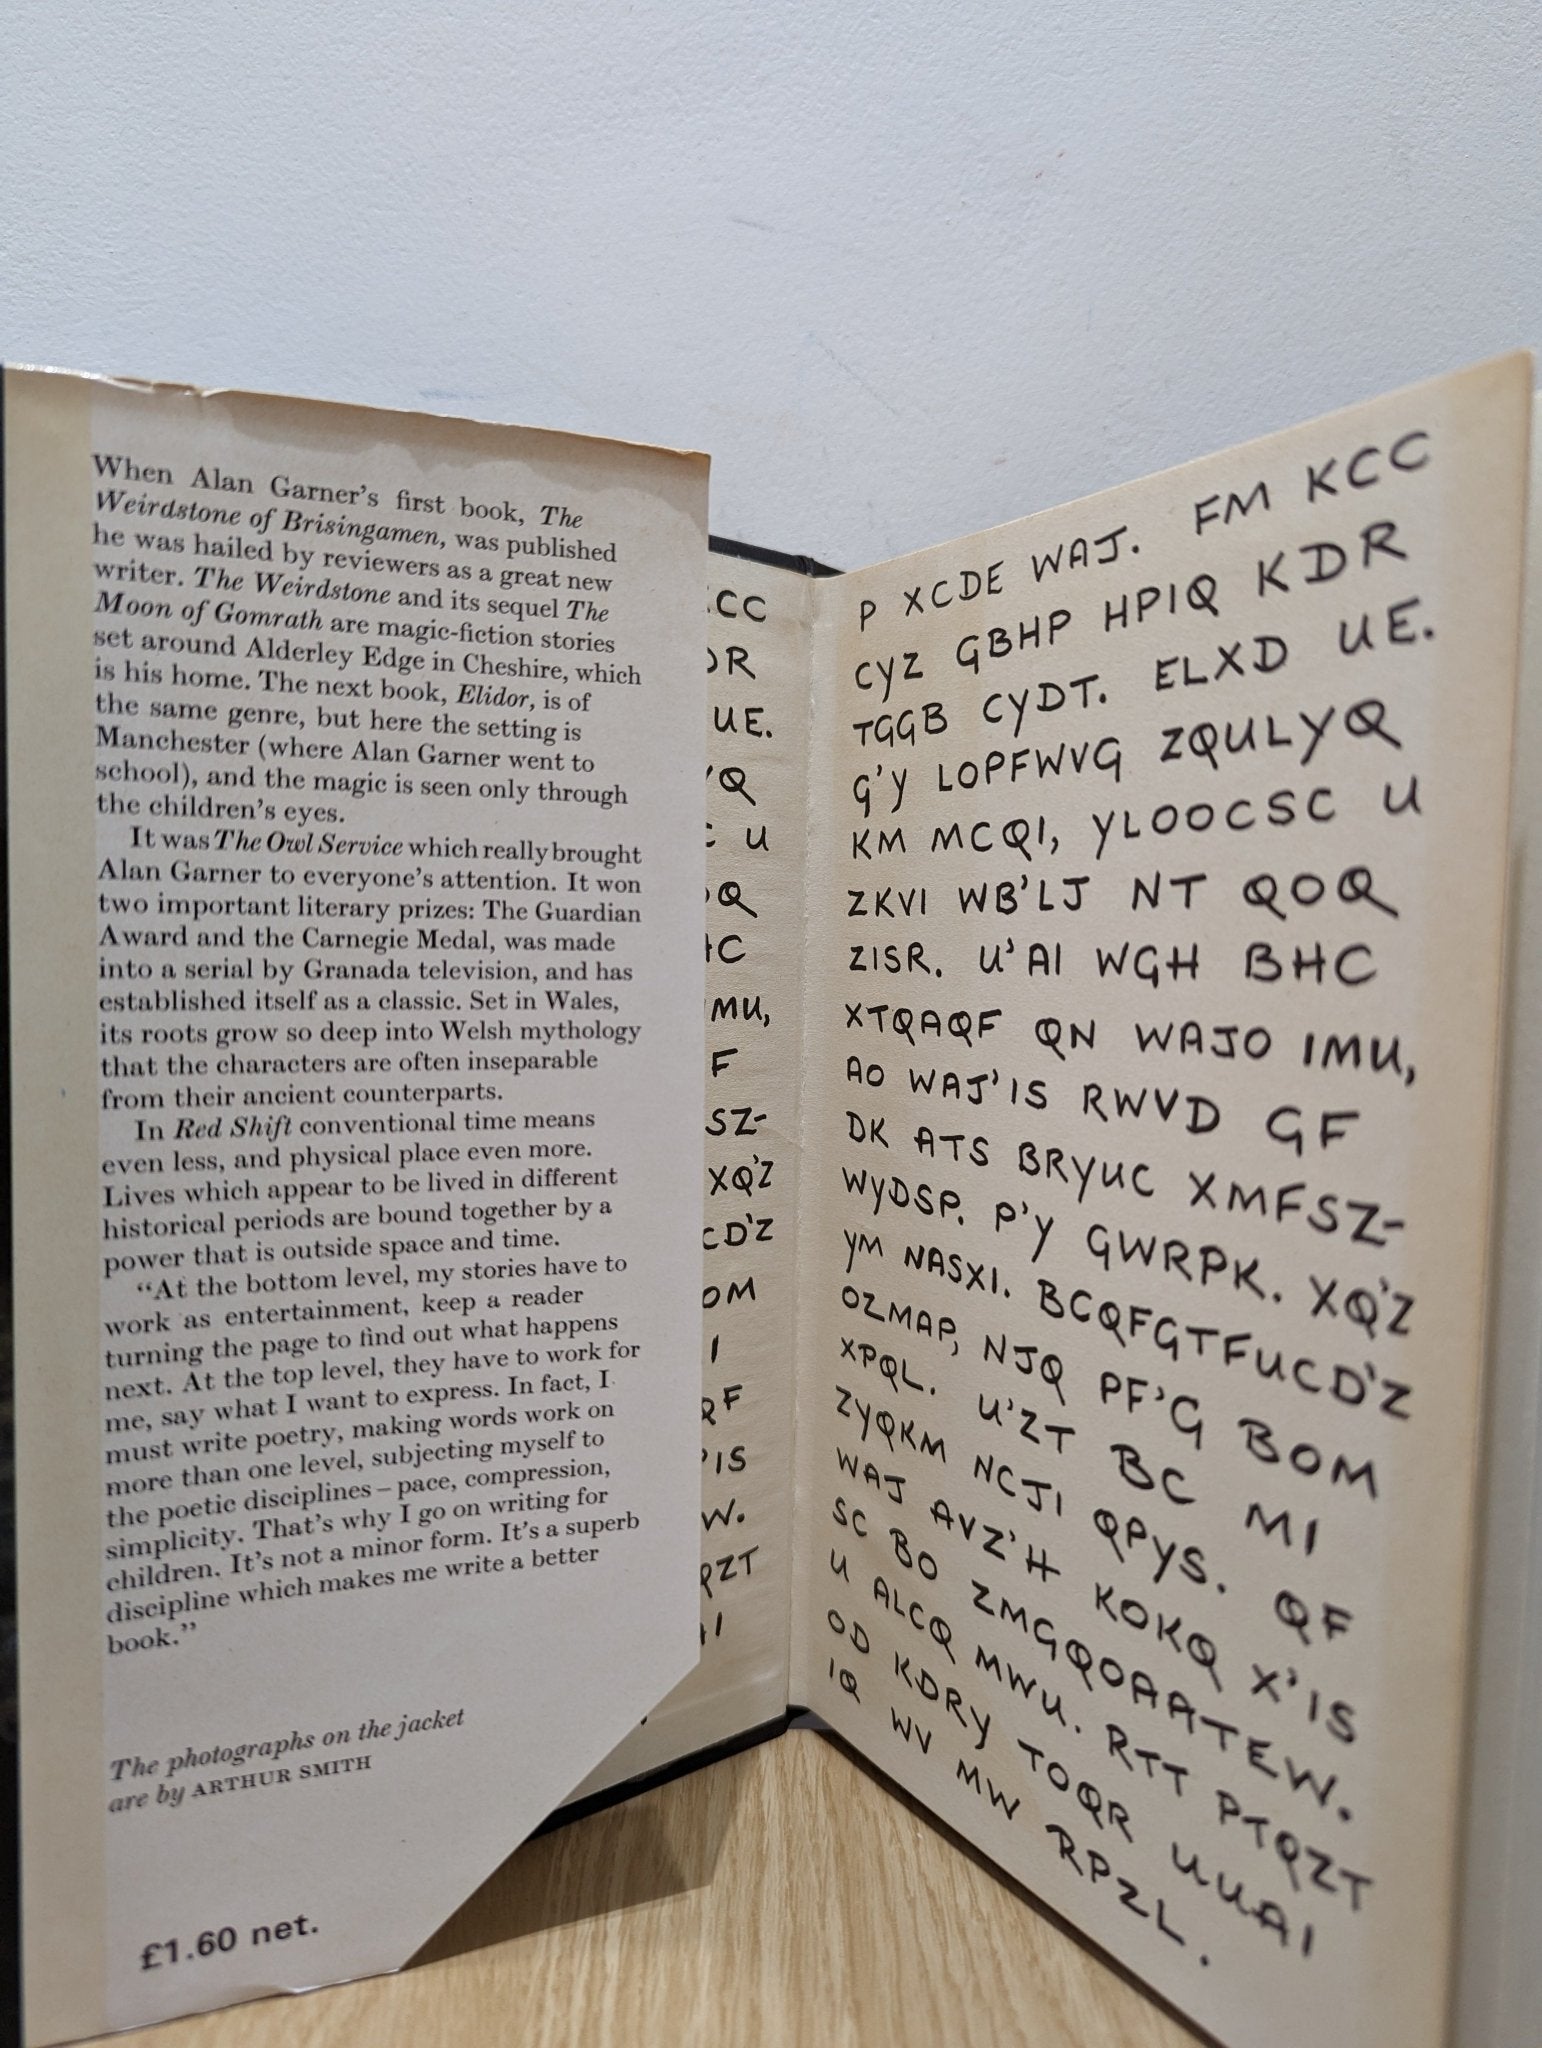 When Alan Garner's first book, The
Weirdstone of Brisingamen, was published
he was hailed by reviewers as a great new
writer. The Weirdstone and its sequel The
Moon of Gomrath are magic-fiction stories
set around Alderley Edge in Cheshire, which
is his home. The next book, Elidor, is of
the same genre, but here the setting is
Manchester (where Alan Garner went to
school), and the magic is seen only through
the children's eyes.
It was The Owl Service which really brought
Alan Garner to everyone's attention. It won
two important literary prizes: The Guardian
Award and the Carnegie Medal, was made
into a serial by Granada television, and has
established itself as a classic. Set in Wales,
its roots grow so deep into Welsh mythology
that the characters are often inseparable
from their ancient counterparts.
In Red Shift conventional time means
even less, and physical place even more.
Lives which appear to be lived in different
historical periods are bound together by a
power that is outside space and time.
"At the bottom level, my stories have to
work as entertainment, keep a reader
turning the page to find out what happens
next. At the top level, they have to work for
me, say what I want to express. In fact, I
must write poetry, making words work on
more than one level, subjecting myself to
the poetic disciplines – pace, compression,
simplicity. That's why I go on writing for
children. It's not a minor form. It's a superb
discipline which makes me write a better
book."
The photographs on the jacket
are by ARTHUR SMITH
£1.60 net.
CC
R
UE.
Q
U
Q
C
MU,
F
SZ-
XQ'Z
D'Z
OM
I
F
IS
W.
ZT
I
P XCDE WAJ. FM KCC
CYZ GBHP HPIQ KDR
TGGB CYDT. ELXD UE.
G'Y LOPFWVG ZQULYQ
KM MCQI, YLOOCSC U
ZKVI WB'LJ NT QOQ
ZISR. U'AI WGH BHC
XTQAQF QN WAJO IMU,
AO WAJ'IS RWVD GF
DK ATS BRYUC XMFSZ-
WYDSP. P'Y GWRPK. XQ'Z
YM NASXI. BCQFGTFUCD'Z
OZMAP, NJQ PF'G BOM
XPQL. U'ZT BC MI
ZYQKM NCJI QPYS. QF
WAJ AVZ'H KOKQ X'IS
SC BO ZMGQOAATEW.
U ALCQ MWU. RTT PTQZT
OD KDRY TOQR UUAI
IQ WV MW RPZL.